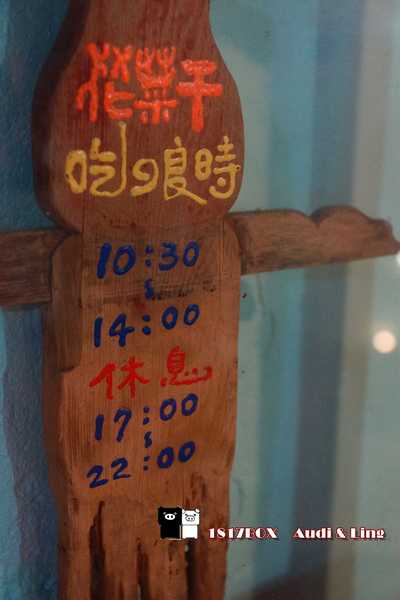 花菜干
吃の良時
10:30
~
14:00
休息
17:00
~
22:00
1817BOX Audi & Ling